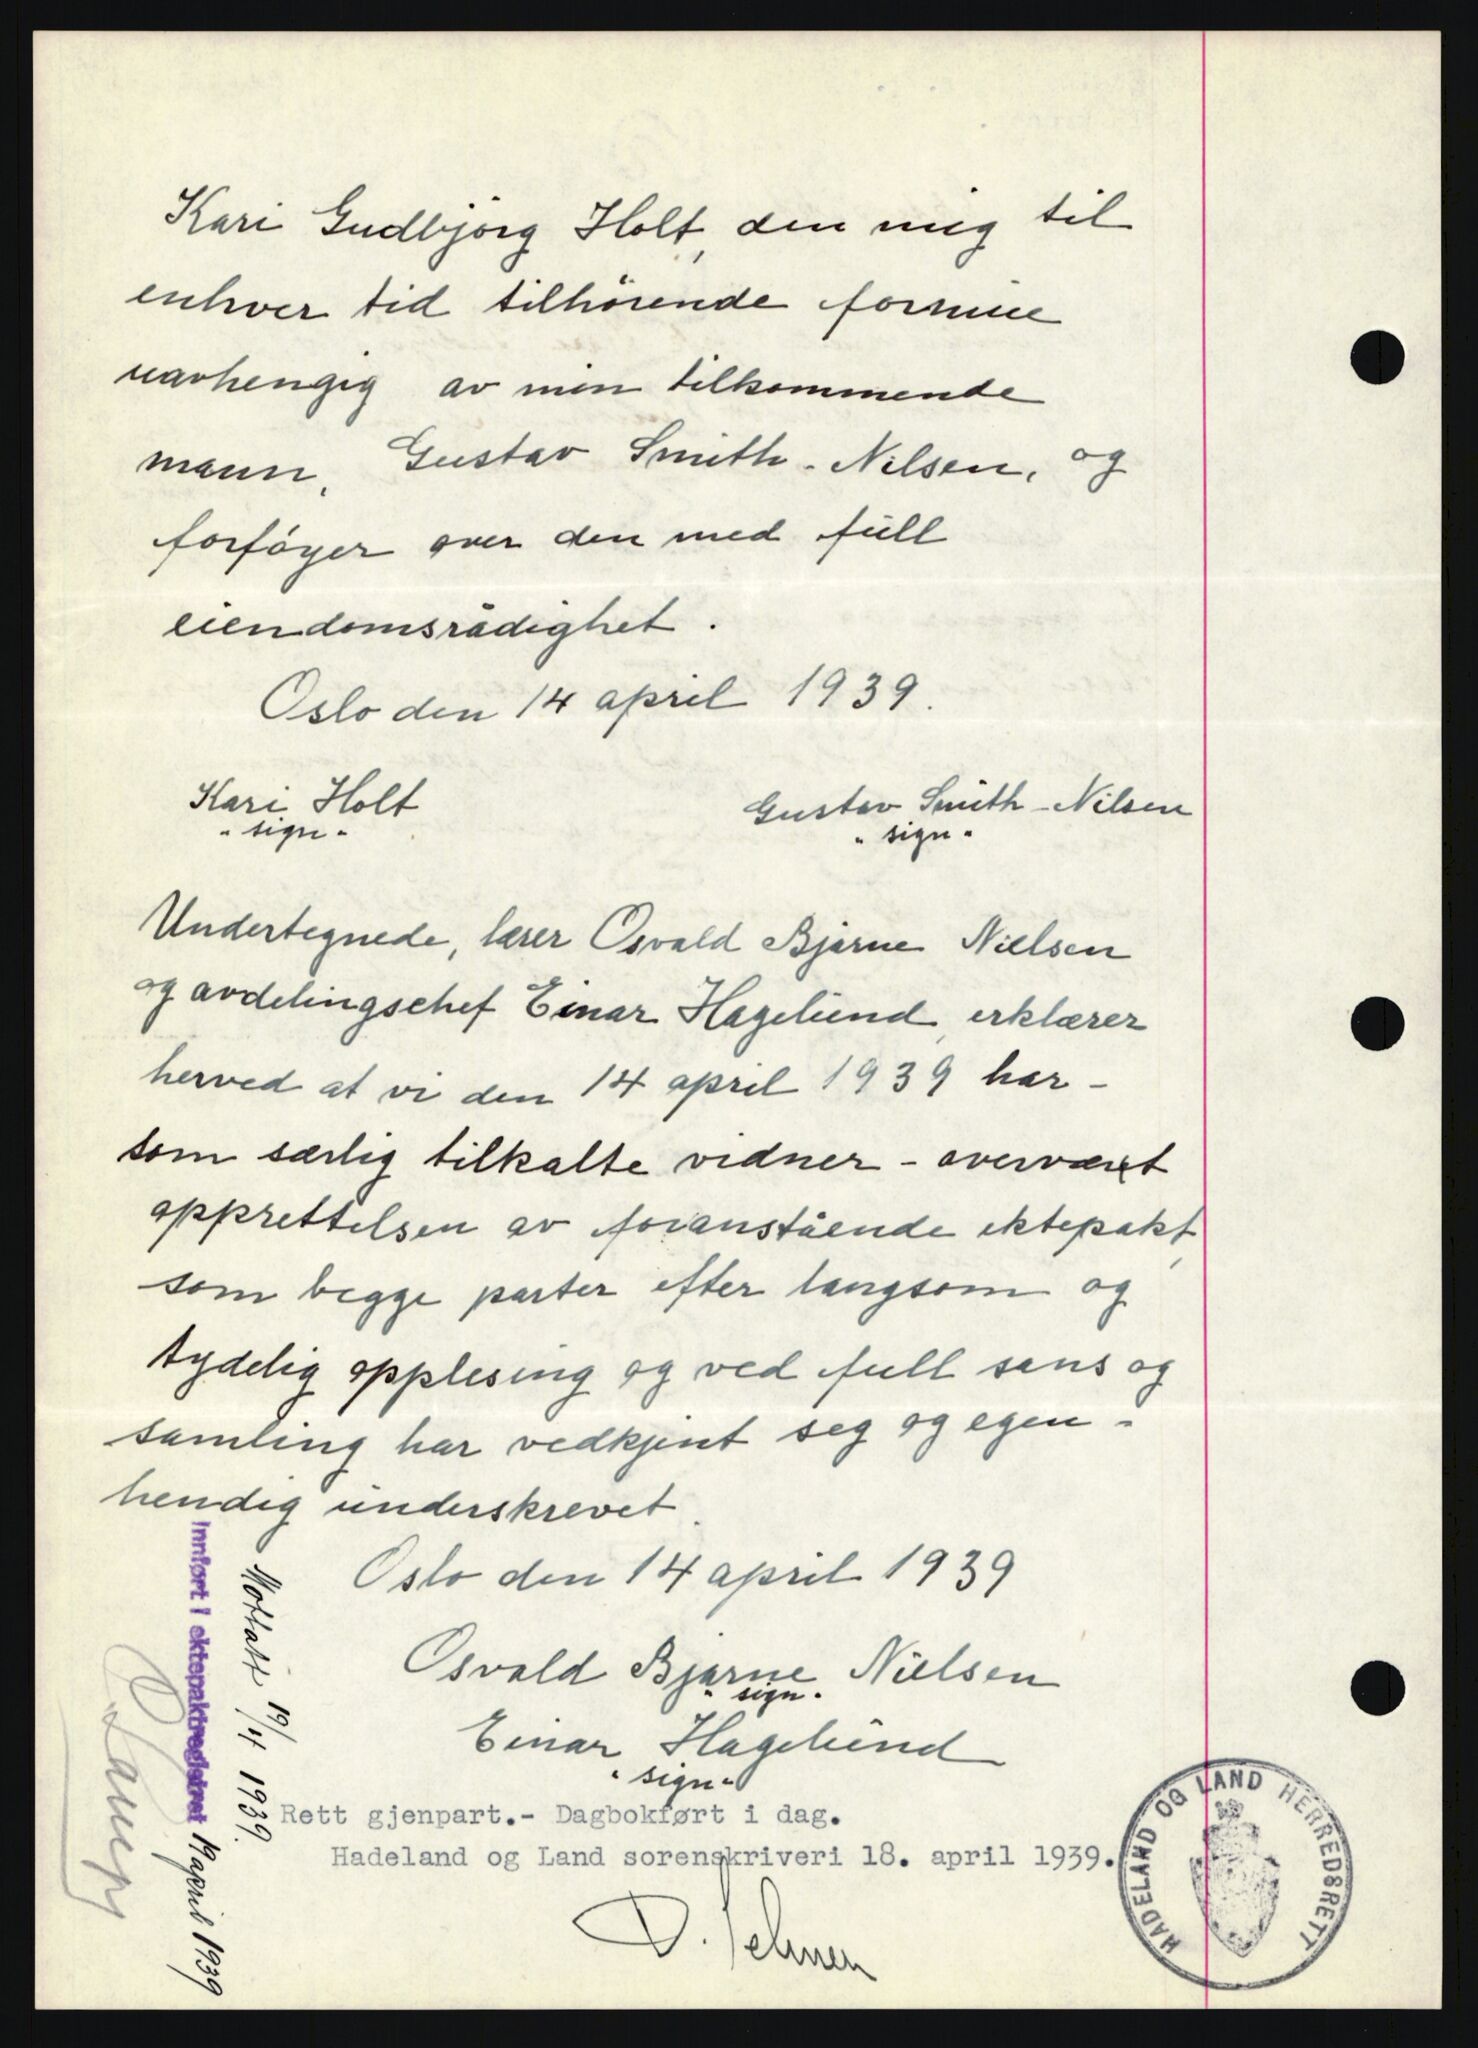 Kari Gudbjörg Holt, den mig til
enhver tid tilhörende formue
uavhengig av min tilkommende
mann, Gustav Smith-Nilsen, og
forföyer over den med full
eiendomsrådighet.
Oslo den 14 april 1939.
Kari Holt
"sign"
Gustav Smith-Nilsen
"sign"
Undertegnede, lærer Osvald Bjarne Nielsen
og avdelingschef Einar Hagelund, erklærer
herved at vi den 14 april 1939 har -
som særlig tilkalte vidner - overværet
opprettelsen av foranstående ektepakt,
som begge parter efter langsom og
tydelig opplesing og ved full sans og
samling har vedkjent seg og egen-
hendig underskrevet.
Oslo den 14 april 1939
Osvald Bjarne Nielsen
"sign"
Einar Hagelund
"sign"
Rett gjenpart.- Dagbokført i dag.
Hadeland og Land sorenskriveri 18. april 1939.
HADELAND OG LAND HERREDSRETT
Mottatt 19/4 1939.
Innført i ektepaktregistret 19 april 1939